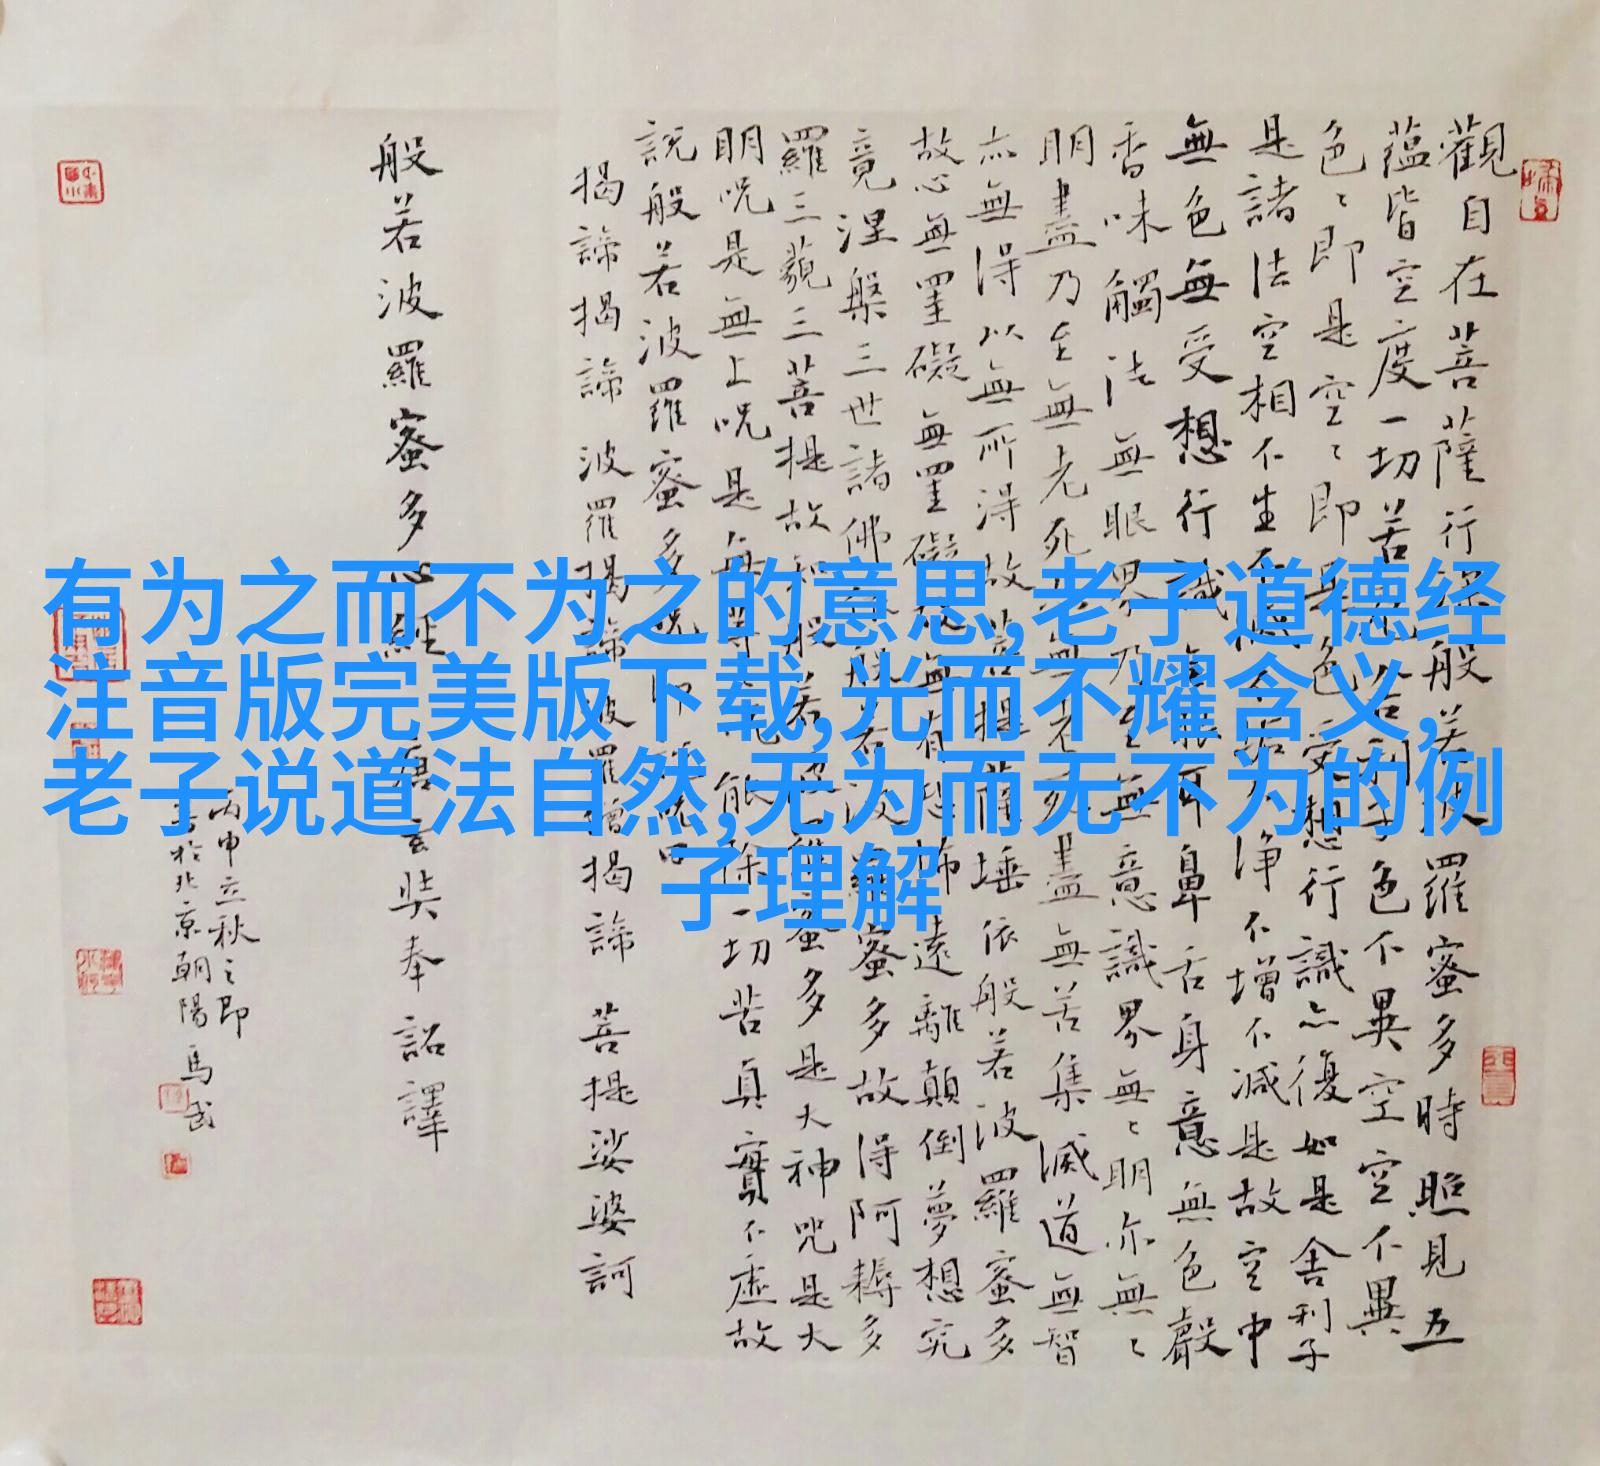 有为之而不为之的意思,老子道德经
注音版完美版下载,光而不耀含义,
老子说道法自然,无为而无不为的例
子理解
觀自在菩薩行深般若波羅蜜多時照見五
蘊皆空度一切苦厄舍利子色不異空空不異
色〻即是空〻即是色受想行識亦復如是舍利子
是諸法空相不生不滅不垢不淨不增不減是故空中
無色無受想行識無眼耳鼻舌身意無色聲
香味觸法無眼界乃至無意識界無〻明亦無〻
明盡乃至無老死亦無老死盡無苦集滅道無智
亦無得以無所得故菩提薩埵依般若波羅蜜多
故心無罣礙無罣礙故無有恐怖遠離顛倒夢想究
竟涅槃三世諸佛依般若波羅蜜多故得阿耨多
羅三藐三菩提故知般若波羅蜜多是大神咒是大
明咒是無上咒是無等等咒能除一切苦真實不虛故
說般若波羅蜜多咒即說咒曰
揭諦揭諦 波羅揭諦 波羅僧揭諦 菩提娑婆訶
般若波羅蜜多心經 唐玄奘奉詔譯
丙申立秋之即
書於北京朝陽 馬